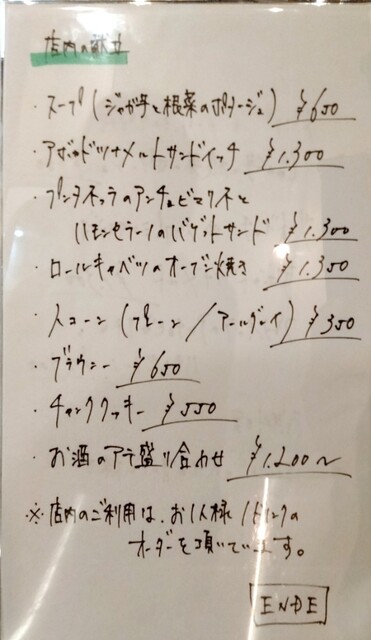 店内の献立
・スープ(ジャガ芋と根菜のポタージュ) ¥650
・アボカドツナメルトサンドイッチ ¥1.300
・プンタネッラのアンチョビマリネと
ハモンセラーノのバゲットサンド ¥1.300
・ロールキャベツのオーブン焼き ¥1.350
・スコーン (プレーン/アールグレイ) ¥350
・ブラウニー ¥650
・チャンククッキー ¥550
・お酒のアテ盛り合わせ ¥1.200〜
※店内のご利用は、お1人様1ドリンクの
オーダーを頂いています。
ENDE